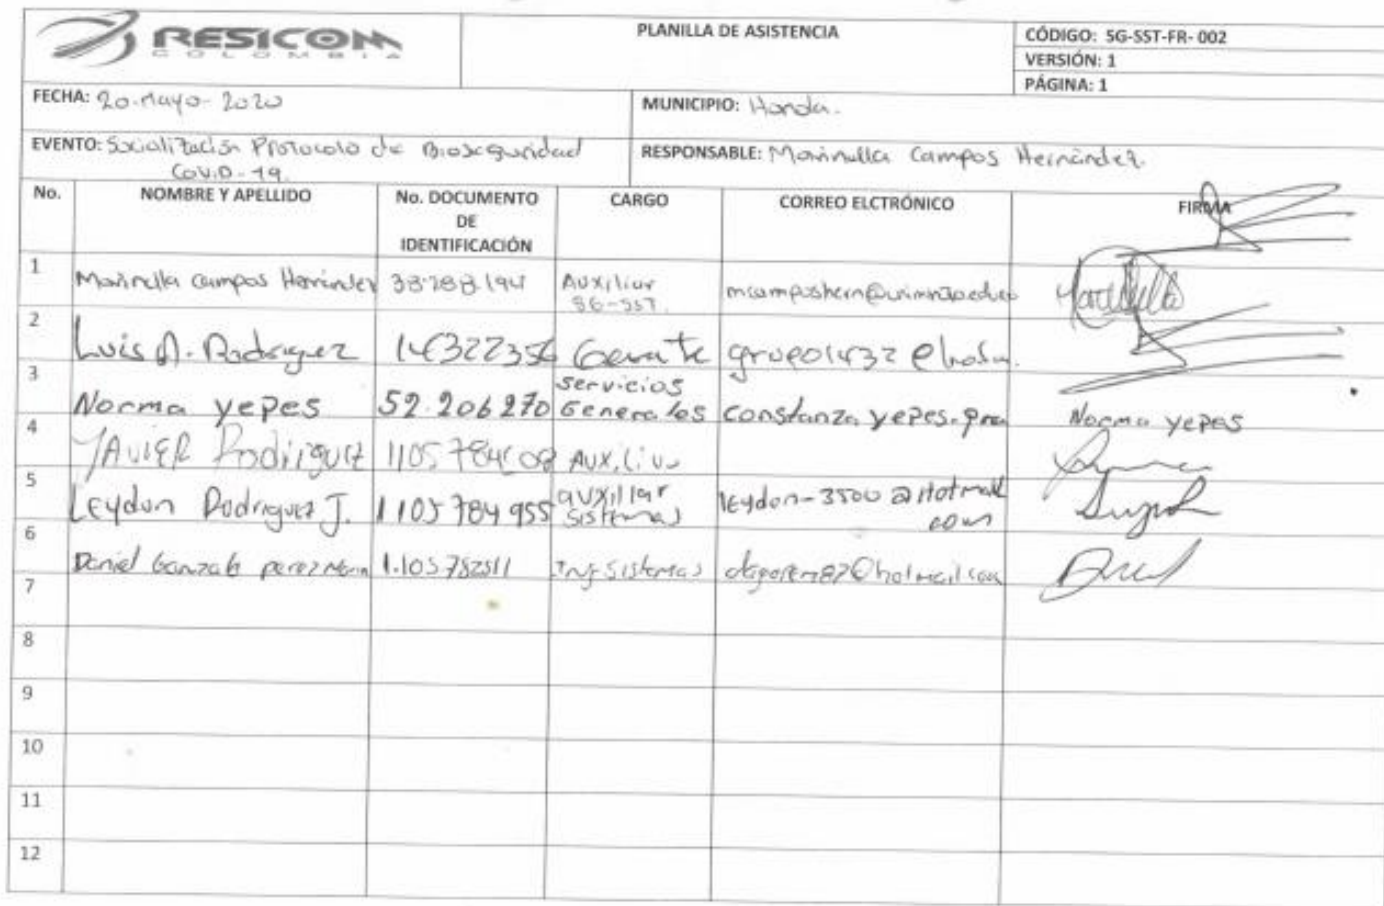 RESICOM
COLOMBIA
PLANILLA DE ASISTENCIA
CÓDIGO: SG-SST-FR- 002
VERSIÓN: 1
PÁGINA: 1
FECHA: 20-Mayo-2020
MUNICIPIO: Honda.
EVENTO: Socialización Protocolo de Bioseguridad
COVID-19.
RESPONSABLE: Marinella Campos Hernández.
No.
NOMBRE Y APELLIDO
No. DOCUMENTO
DE
IDENTIFICACIÓN
CARGO
CORREO ELCTRÓNICO
FIRMA
1
Marinella Campos Hernández
Auxiliar
SG-SST.
2
Luis A. Rodriguez
Gerente
3
Norma yepes
52.206270
servicios
Generales
constanza yepes.
Norma yepes
4
JAVIER Rodriguez
5
Leydon Rodriguez J.
1105 784 955
auxiliar
sistemas
leydon-3500@Hotmail
com
6
Daniel
Ing Sistemas
7
8
9
10
11
12